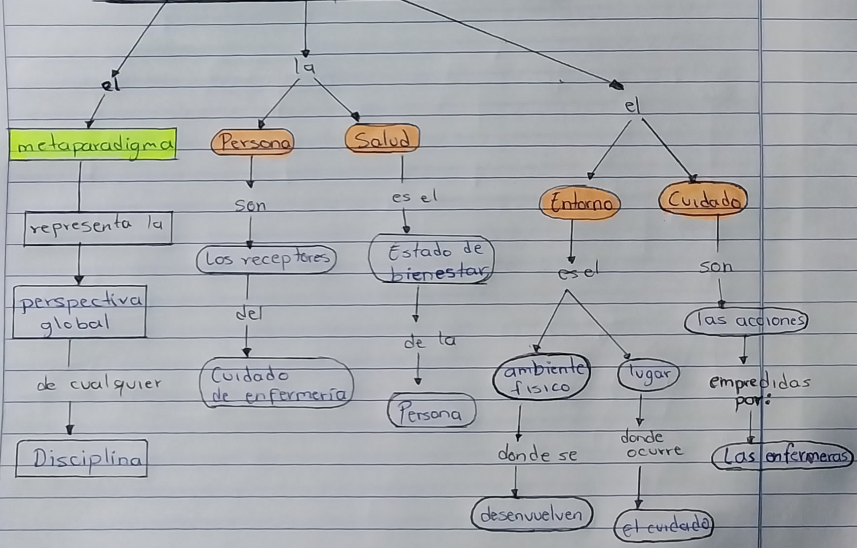 el
metaparadigma
representa la
perspectiva
global
de cualquier
Disciplina
la
Persona
son
Los receptores
del
Cuidado
de enfermería
Salud
es el
Estado de
bienestar
de la
Persona
el
Entorno
es el
ambiente
fisico
donde se
desenvuelven
lugar
donde
ocurre
el cuidado
Cuidado
son
las acciones
empredidas
por:
Las enfermeras